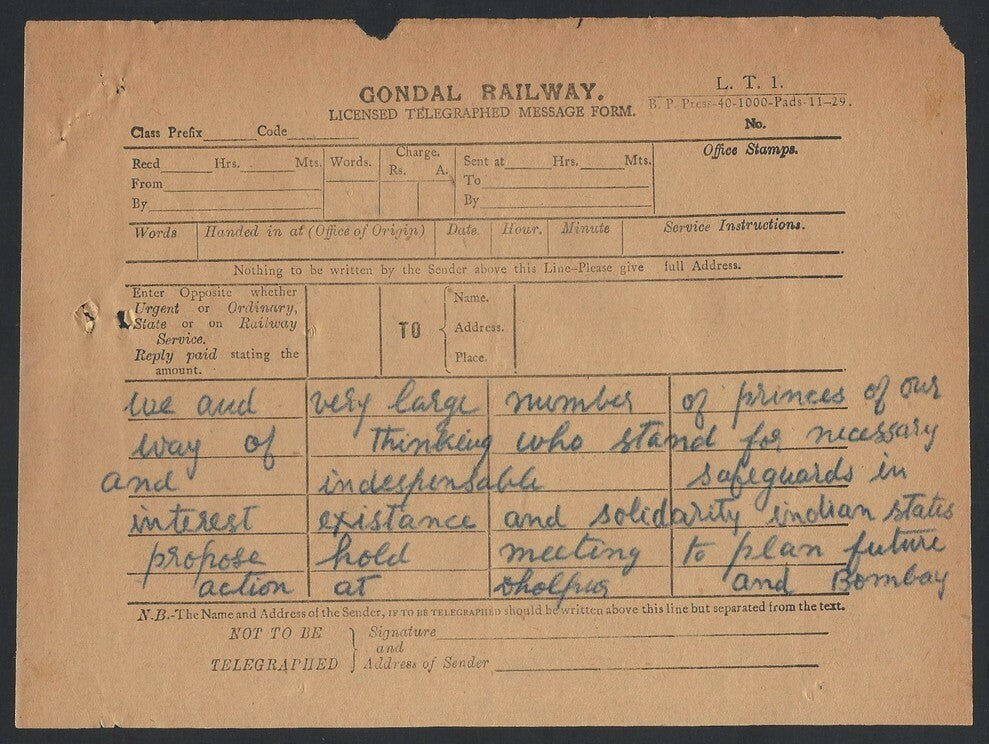 GONDAL RAILWAY.
LICENSED TELEGRAPHED MESSAGE FORM.
L. T. 1.
B. P. Press-40-1000-Pads-11-29.
No.
Class Prefix Code
Recd Hrs. Mts.
From
By
Words.
Charge.
Rs. A.
Sent at Hrs. Mts.
To
By
Office Stamps.
Words Handed in at (Office of Origin) Date. Hour. Minute Service Instructions.
Nothing to be written by the Sender above this Line-Please give full Address.
Enter Opposite whether
Urgent or Ordinary,
State or on Railway
Service.
Reply paid stating the
amount.
TO
Name.
Address.
Place.
we and very large number of princes of our
way of thinking who stand for necessary
and indespensable safeguards in
interest existance and solidarity indian states
propose hold meeting to plan future
action at Dholpur and Bombay
N.B.-The Name and Address of the Sender, IF TO BE TELEGRAPHED should be written above this line but separated from the text.
NOT TO BE
TELEGRAPHED
Signature
and
Address of Sender